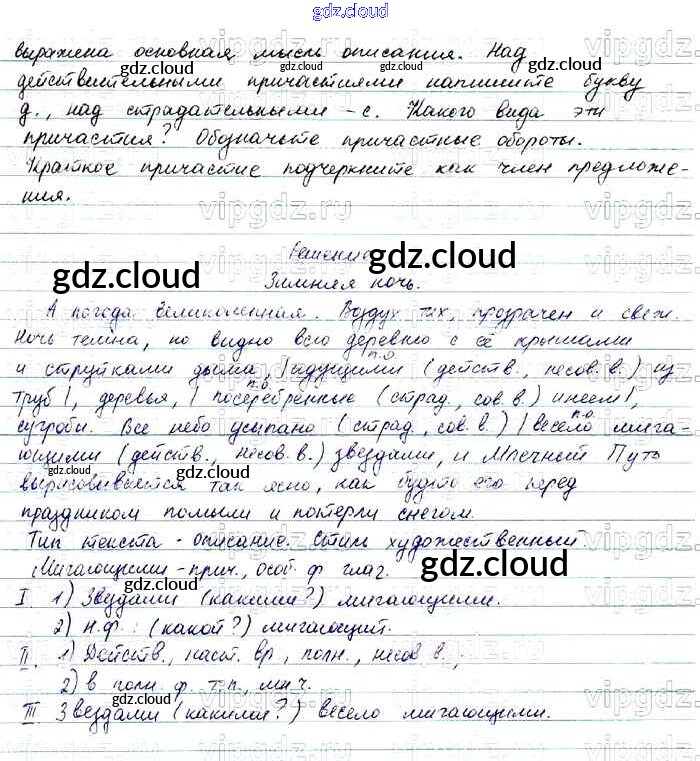 gdz.cloud
выражена основная мысль описания. Над
действительными причастиями напишите букву
д., над страдательными - с. Какого вида эти
причастия? Обозначьте причастные обороты.
Краткое причастие подчеркните как член предложе-
ния.
Решение
gdz.cloud gdz.cloud
Зимняя ночь.
А погода великолепная. Воздух тих, прозрачен и свеж.
Ночь темна, но видно всю деревню с её крышами
и струйками дыма, |идущими (действ., несов. в.) из
труб|, деревья, |посеребрённые (страд., сов. в.) инеем|,
сугробы. Все небо усыпано (страд., сов. в.) |весело мига-
ющими (действ., несов. в.) звездами, и Млечный Путь
вырисовывается так ясно, как будто его перед
праздником помыли и потёрли снегом.
Тип текста - описание. Стиль художественный.
Мигающими - прич., особ. ф. глаг.
I. 1) Звездами (какими?) мигающими.
2) Н.ф.: (какой?) мигающий.
II. 1) Действ., наст. вр., полн., несов. в.,
2) в полн. ф. т.п., мн.ч.
III Звездами (какими?) весело мигающими.